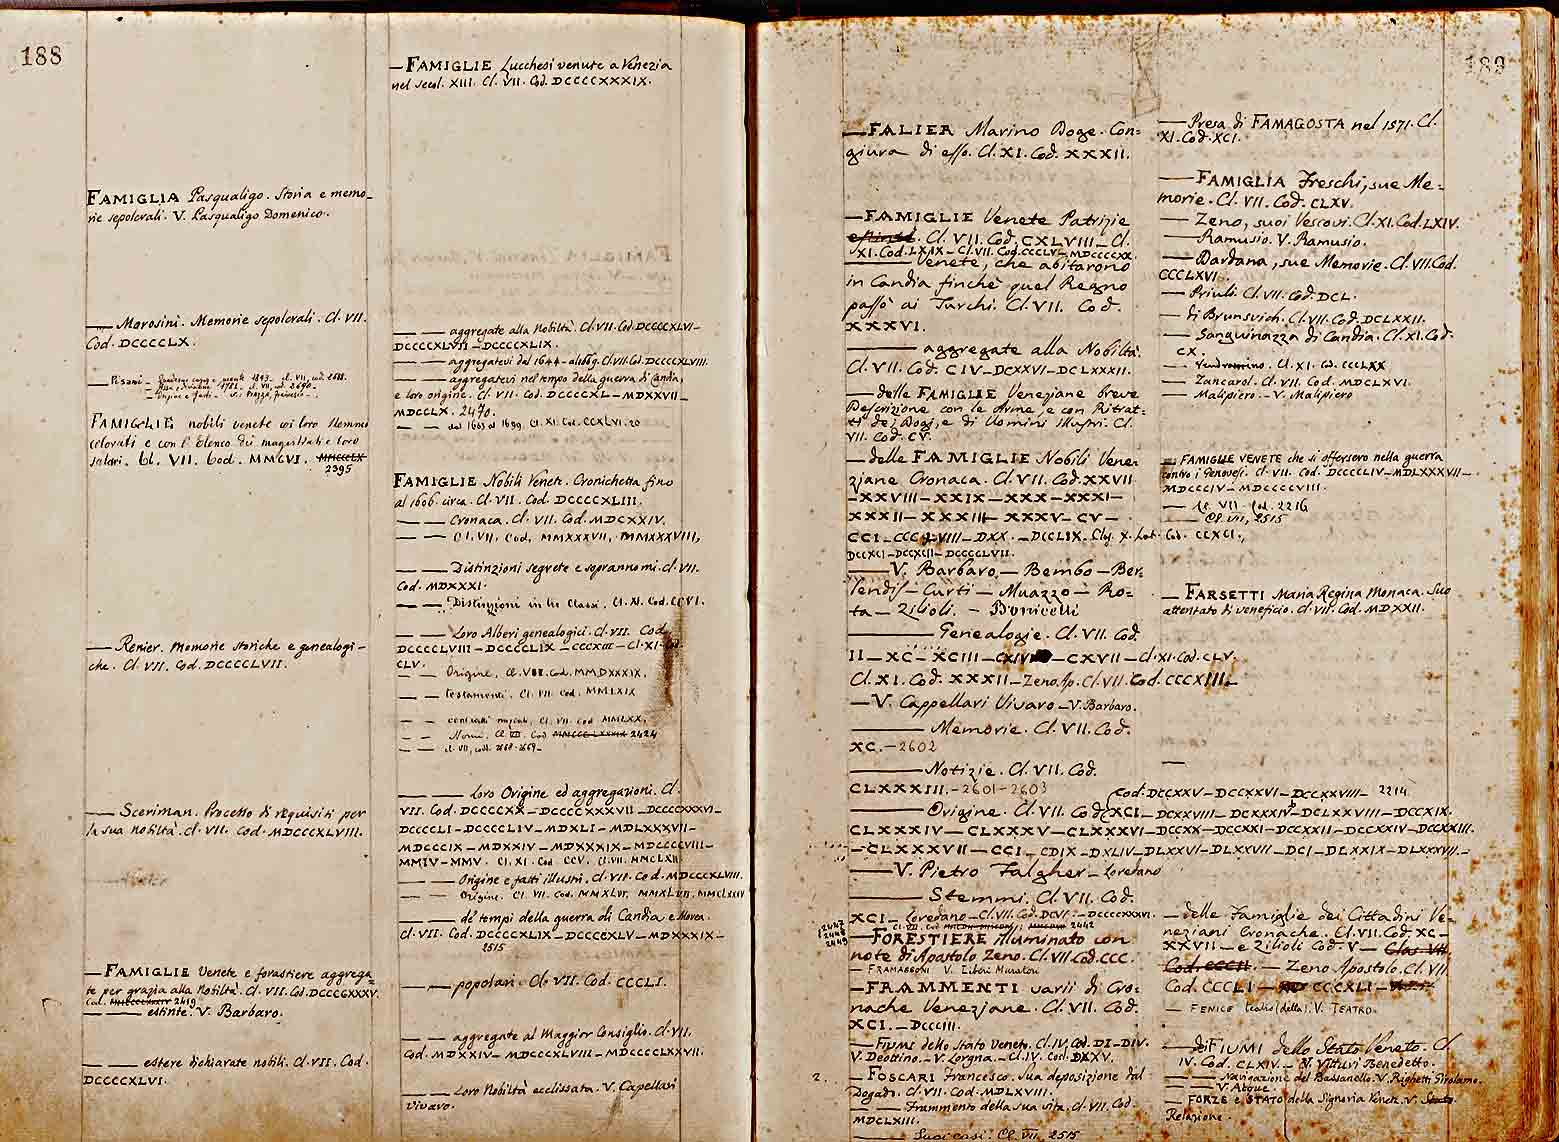 188
FAMIGLIA Pasqualigo. Storia e memo-
rie sepolcrali. V. Pasqualigo Domenico.
— Morosini. Memorie sepolcrali. Cl. VII.
Cod. DCCCCLX.
— Pisani –
FAMIGLIE nobili venete coi loro stemmi
colorati e con l'elenco dei magistrati e loro
salari. Cl. VII. Cod. MMCVI.
2395
— Renier. Memorie storiche e genealogi-
che. Cl. VII. Cod. DCCCCLVII.
— Sceriman. Processo di requisiti per
la sua nobiltà. Cl. VII. Cod. MDCCCXLVIII.
— FAMIGLIE Venete e forastiere aggrega-
te per grazia alla Nobiltà. Cl. VII. Cod. DCCCCXXXV.
Cod. 2419
— — estinte. V. Barbaro.
— — estere dichiarate nobili. Cl. VII. Cod.
DCCCCXLVI.
— FAMIGLIE Lucchesi venute a Venezia
nel secol. XIII. Cl. VII. Cod. DCCCCXXXIX.
— — aggregate alla Nobiltà. Cl. VII. Cod. DCCCCXLVI–
DCCCCXLVII – DCCCCXLIX.
— — aggregatevi dal 1644 – al 1669. Cl. VII. Cod. DCCCCXLVIII.
— — aggregatevi nel tempo della guerra di Candia,
e loro origine. Cl. VII. Cod. DCCCCXL – MDXXVII –
MDCCLX. 2470.
— — dal 1663 al 1699. Cl. XI. Cod. CCXLVI. 20
FAMIGLIE Nobili Venete. Cronichetta fino
al 1606. circa. Cl. VII. Cod. DCCCCXLIII.
— — Cronaca. Cl. VII. Cod. MDCXXIV.
— — Cl. VII. Cod. MMXXXVII, MMXXXVIII,
— — Distinzioni segrete e soprannomi. Cl. VII.
Cod. MDXXXI.
— — Distinzioni in tre Classi. Cl. XI. Cod. CCVI.
— — Loro Alberi genealogici. Cl. VII. Cod.
DCCCCLVIII – DCCCCLIX – CCCXCII – Cl. XI – Cod.
CLV.
— — Origine. Cl. VII. Cod. MMDXXXIX.
— — Testamenti. Cl. VII. Cod. MMLXIX
— — contratti nuziali. Cl. VII. Cod. MMLXX.
— — Nomi. Cl. VII. Cod. 2424
— — cl. VII, codd. 2668 – 2669 –
— — Loro Origine ed aggregazioni. Cl.
VII. Cod. DCCCCXX – DCCCCXXXVII – DCCCCXXXVI –
DCCCCLI – DCCCCLIV – MDXLI – MDLXXXVII –
MDCCCIX – MDXXIV – MDXXXIX – MDCCCCVIII –
MMIV – MMV. Cl. XI. Cod. CCV. Cl. VII. MMCLXII
— — Origine e fatti illustri. Cl. VII. Cod. MDCCCXLVIII.
— — Origine. Cl. VII. Cod. MMXLVI, MMXLVII, MMCLXXIV
— — de' tempi della guerra di Candia e Morea.
Cl. VII. Cod. DCCCCXLIX – DCCCCXLV – MDXXXIX –
2515
— — popolari. Cl. VII. Cod. CCCLI.
— — aggregate al Maggior Consiglio. Cl. VII.
Cod. MDXXIV – MDCCCXLVIII – MDCCCCLXXVII.
— — Loro Nobiltà ecclissata. V. Capellari
Vivaro.
189
— FALIER Marino Doge. Con=
giura di esso. Cl. XI. Cod. XXXII.
— FAMIGLIE Venete Patrizie
estinte. Cl. VII. Cod. CXLVIII – Cl.
XI. Cod. LXIX – Cl. VII. Cod. CCCLV – MDCCCCXX.
— Venete, che abitarono
in Candia finchè quel Regno
passò ai Turchi. Cl. VII. Cod.
XXXVI.
— aggregate alla Nobiltà.
Cl. VII. Cod. CIV – DCXXVI – DCLXXXII.
— delle FAMIGLIE Veneziane breve
Descrizione con le Arme, e con Ritrat-
ti de' Dogi, e di Uomini Illustri. Cl.
VII. Cod. CV.
— delle FAMIGLIE Nobili Vene-
ziane Cronaca. Cl. VII. Cod. XXVII
– XXVIII – XXIX – XXX – XXXI –
XXXII – XXXIII – XXXV – CV –
CCI – CCCXLVIII – DXX – DCCLIX. Cl. X. Lat. Cod. CCXCI.,
DCCXCI – DCCXCII – DCCCCLVII.
— V. Barbaro, – Bembo – Ber-
lendis – Curti – Muazzo – Ro=
ta – Zilioli. – Bonicelli
— Genealogie. Cl. VII. Cod.
II – XC – XCIII – CXIV – CXVII – Cl. XI. Cod. CLV.
Cl. XI. Cod. XXXII – Zeno Ap. Cl. VII. Cod. CCCXIII. –
— V. Cappellari Vivaro – V. Barbaro.
— Memorie. Cl. VII. Cod.
XC. – 2602
— Notizie. Cl. VII. Cod.
CLXXXIII. – 2601 – 2603
Cod. DCCXXV – DCCXXVI – DCCXXVIII – 2214.
— Origine. Cl. VII. Cod. XCI – DCXXVIII – DCXXXIV – DCLXXVIII – DCCXIX.
CLXXXIV – CLXXXV – CLXXXVI – DCCXX – DCCXXI – DCCXXII – DCCXXIV – DCCXXIII.
– CLXXXVII – CCI – CDIX – DXLIV – DLXXVI – DLXXVII – DCI – DLXXIX – DLXXXVII. –
— V. Pietro Falgher – Loredano
— Stemmi. Cl. VII. Cod.
XCI – Loredano – Cl. VII. Cod. DCVI. – DCCCCXXXVI.
2442
2447
2448
2449
— FORESTIERE illuminato con
note di Apostolo Zeno. Cl. VII. Cod. CCC.
— FRAMASSONI V. Liberi Muratori
— FRAMMENTI varii di Cro-
nache Veneziane. Cl. VII. Cod.
XCI. – DCCCIII.
— FIUMI dello Stato Veneto. Cl. IV. Cod. DI – DIV.
V. Deottino. – V. Lorgna. – Cl. IV. Cod. DXXV.
2. — FOSCARI Francesco. Sua deposizione dal
Dogado. Cl. VII. Cod. MDLXVIII.
— Frammento della sua vita. Cl. VII. Cod.
MDCLXIII.
— Suoi casi. Cl. VII, 2515
— Presa di FAMAGOSTA nel 1571. Cl.
XI. Cod. XCI.
— FAMIGLIA Freschi, sue Me=
morie. Cl. VII. Cod. CLXV.
— Zeno, suoi Vescovi. Cl. XI. Cod. LXIV.
— Ramusio. V. Ramusio.
— Dardana, sue Memorie. Cl. VII. Cod.
CCCLXVI.
— Priuli. Cl. VII. Cod. DCL.
— di Brunsvich. Cl. VII. Cod. DCLXXII.
— Sanguinazza di Candia. Cl. XI. Cod.
CX.
— Vendramino. Cl. XI. Cod. CCCLXX
— Zancarol. Cl. VII. Cod. MDCLXVI.
— Malipiero. – V. Malipiero
— FAMIGLIE VENETE che si offersero nella guerra
contro i Genovesi. Cl. VII. Cod. DCCCCLIV – MDLXXXVII –
MDCCCIV – MDCCCCVIII.
— Cl. VII. Cod. 2216
— Cl. VII, 2515
— FARSETTI Maria Regina Monaca. Suo
attentato di veneficio. Cl. VII. Cod. MDXXII.
— delle Famiglie dei Cittadini Ve-
neziani Cronache. Cl. VII. Cod. XC –
XXVII – e Zilioli Cod. V – Clas. VII.
Cod. CCCII. – Zeno Apostolo. Cl. VII.
Cod. CCCLI – CCCXLI –
— FENICE teatro (della). V. TEATRO.
— di FIUMI dello Stato Veneto. Cl.
IV. Cod. CLXIV – V. Vitturi Benedetto.
— Navigazione del Bassanello. V. Righetti Girolamo.
— V. Acque.
— FORZE e STATO della Signoria Veneta. V. Stato.
Relazione.